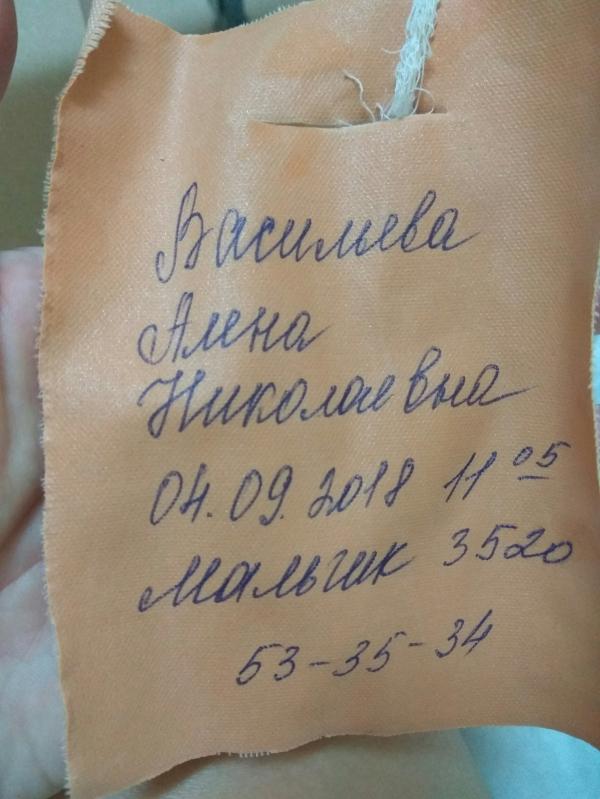 Васильева
Алена
Николаевна
04.09.2018 11 05
Мальчик 3520
53-35-34